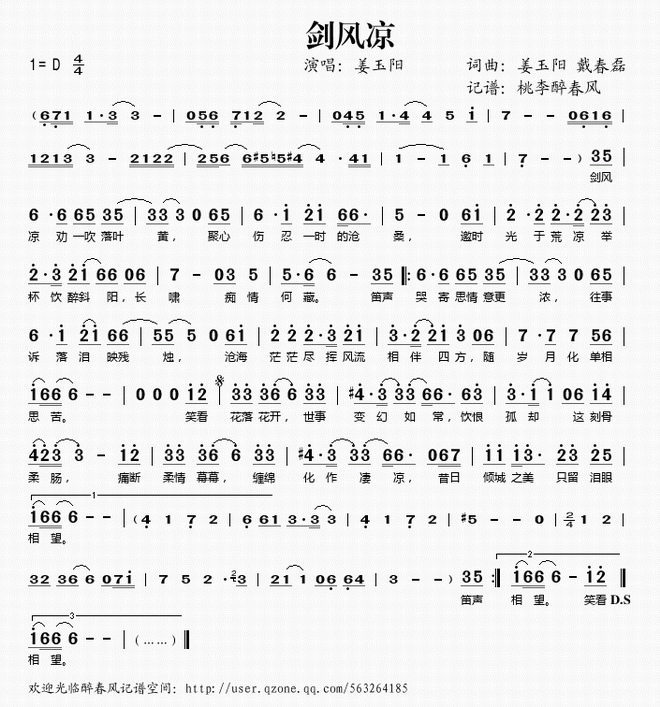 剑风凉
1=D 4/4 演唱：姜玉阳 词曲：姜玉阳 戴春磊
记谱：桃李醉春风
(671 1·3 3 - | 056 712 2 - | 045 1·4 4 5 i | 7 - - 0616 |
1213 3 - 2122 | 256 6#5♮5#4 4 ·41 | 1 - 1 6 1 | 7 - - ) 35 |
剑风
6 ·6 65 35 | 33 3 0 65 | 6 ·i 2i 66· | 5 - 0 6i | 2 ·2 2·2 23 |
凉 劝一吹落叶 黄， 聚心 伤 忍 一时的沧 桑， 邀时 光 于 荒 凉 举
2·3 22i 66 06 | 7 - 03 5 | 5·6 6 - 35 |: 6·6 65 35 | 33 3 0 65 |
杯 饮 醉斜 阳，长 啸 痴 情 何 藏。 笛声 哭 寄思情意更 浓， 往事
6 ·i 2i 66 | 55 5 0 6i | 22 2·3 2i | 3·2 2i 3 06 | 7 ·7 7 56 |
诉 落 泪 映残 烛， 沧海 茫茫尽挥风流 相 伴 四方，随 岁 月 化 单相
i66 6 - - | 0 0 0 i2 | 33 36 6 33 | #4·3 33 66· 63 | 3·i i 06 i4 |
思 苦。 笑看 花落花开，世事 变 幻 如 常，饮恨 孤 却 这 刻骨
423 3 - i2 | 33 36 6 33 | #4·3 33 66· 067 | ii i3· 23 25 |
柔 肠， 痛断 柔情幕幕，缠绵 化 作 凄 凉，昔日 倾城之美 只留泪眼
1
i66 6 - - | (4 1 7 2 | 6 661 3·3 3 | 4 1 7 2 | #5 - - 0 | 2/4 1 2 |
相 望。
32 36 6 07i | 7 5 2 ·3 | 21 1 06 64 | 3 - - ) 35 :| 2 i66 6 - i2 ‖
笛声 相 望。 笑看 D.S
3
i66 6 - - | (……) ‖
相 望。
欢迎光临醉春风记谱空间：http://user.qzone.qq.com/563264185